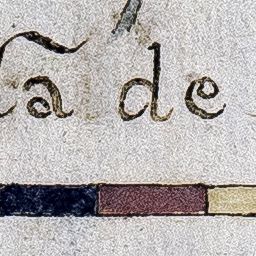 a de